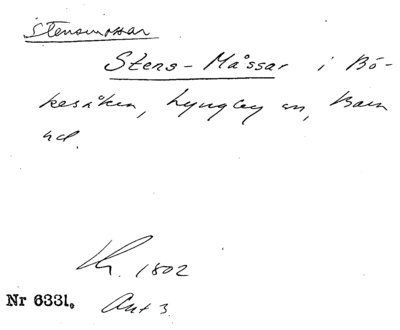 Stensmossar
Stens-Måssar i Bö-
kesåken, Lyngby sn, Bara
hd.
Kr. 1802
Akt 3.
Nr 6331.